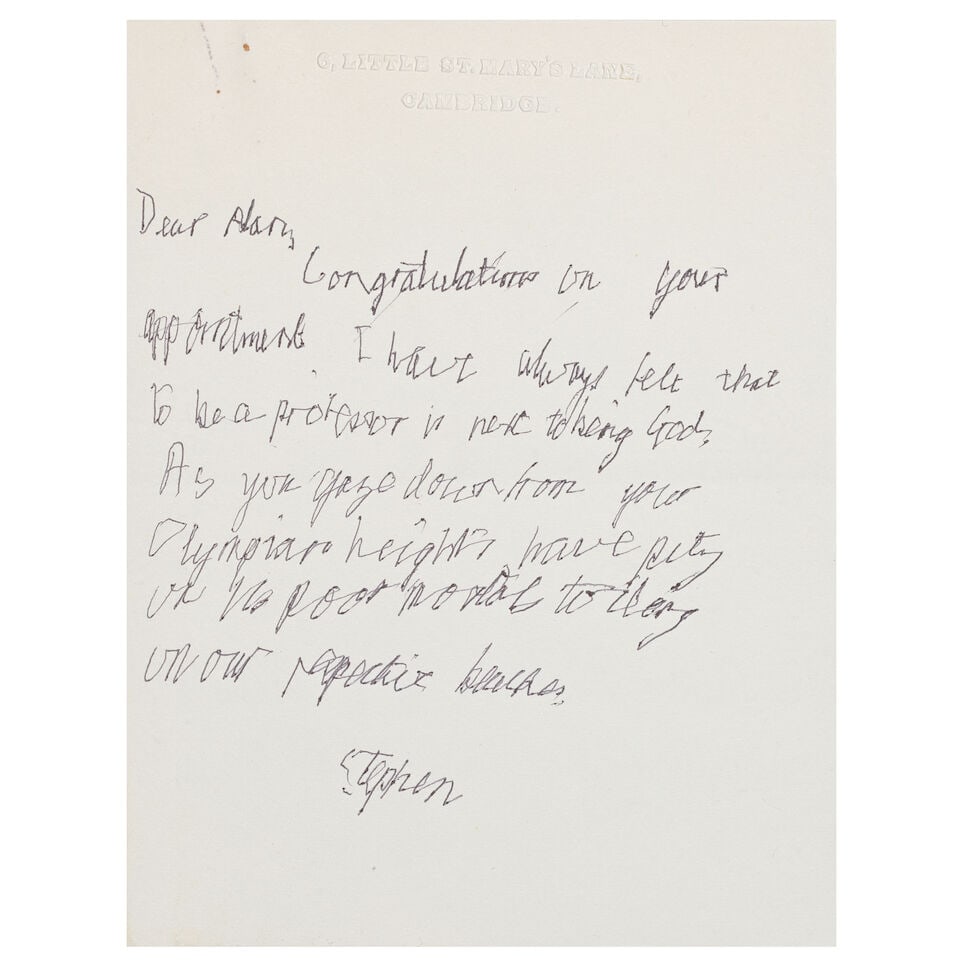 6, LITTLE ST. MARY'S LANE,
CAMBRIDGE.
Dear Alan,
Congratulations on your
appointment. I have always felt that
to be a professor is next to being God.
As you gaze down from your
Olympian heights, have pity
on us poor mortals toiling
on our respective beaches.
Stephen